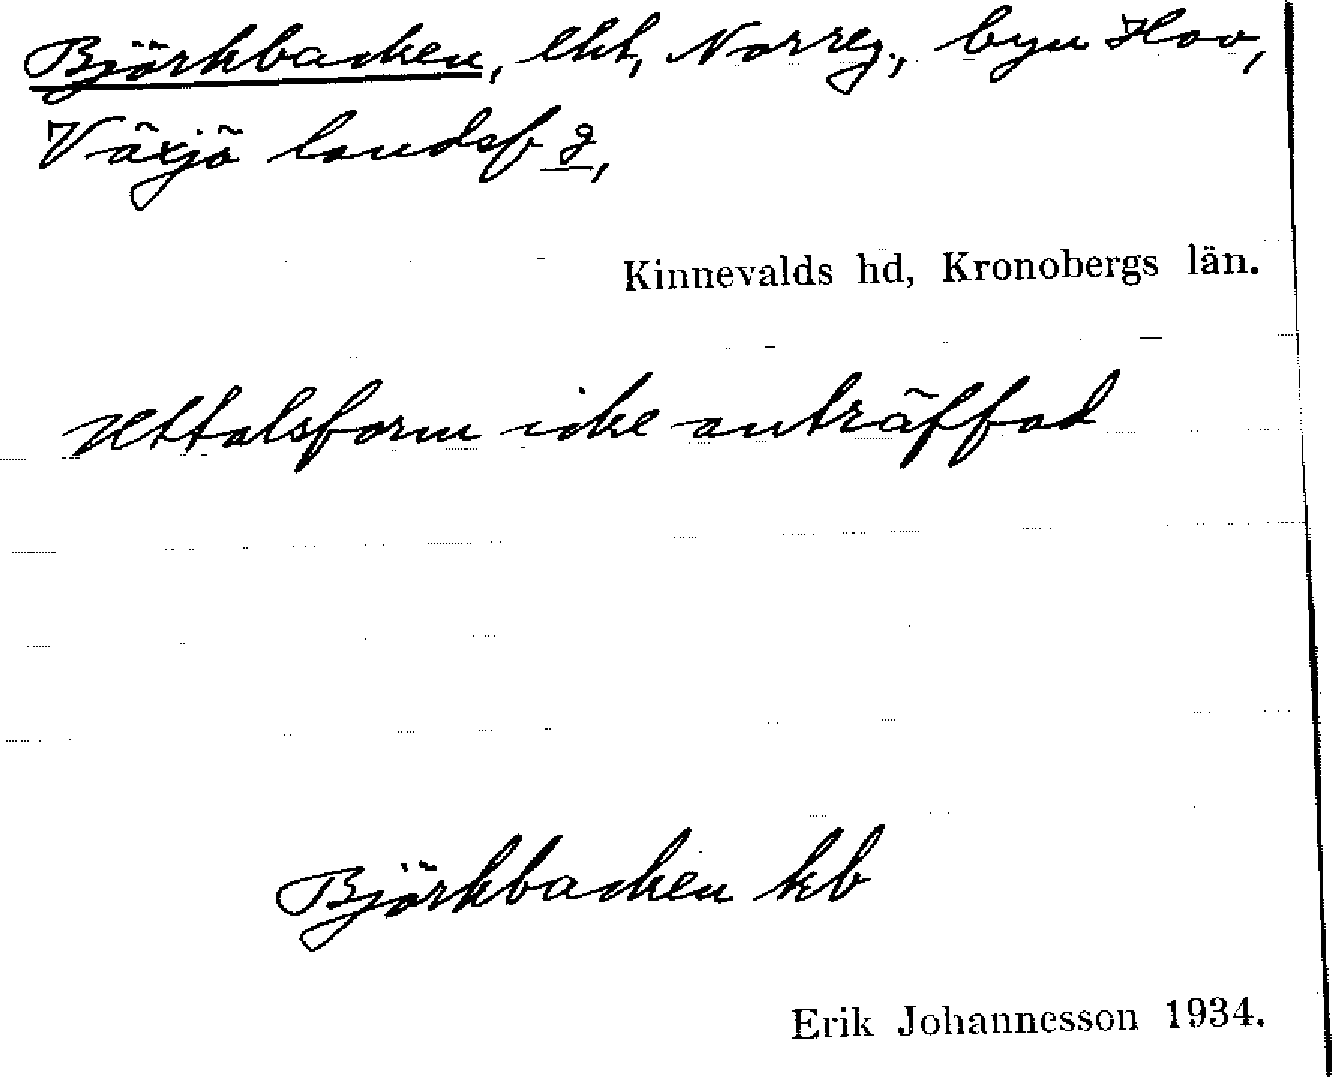 Björkbacken, lht, Norreg., byn Hov,
Växjö landsf g,
Kinnevalds hd, Kronobergs län.
Uttalsform icke anträffad
Björkbacken kb
Erik Johannesson 1934.